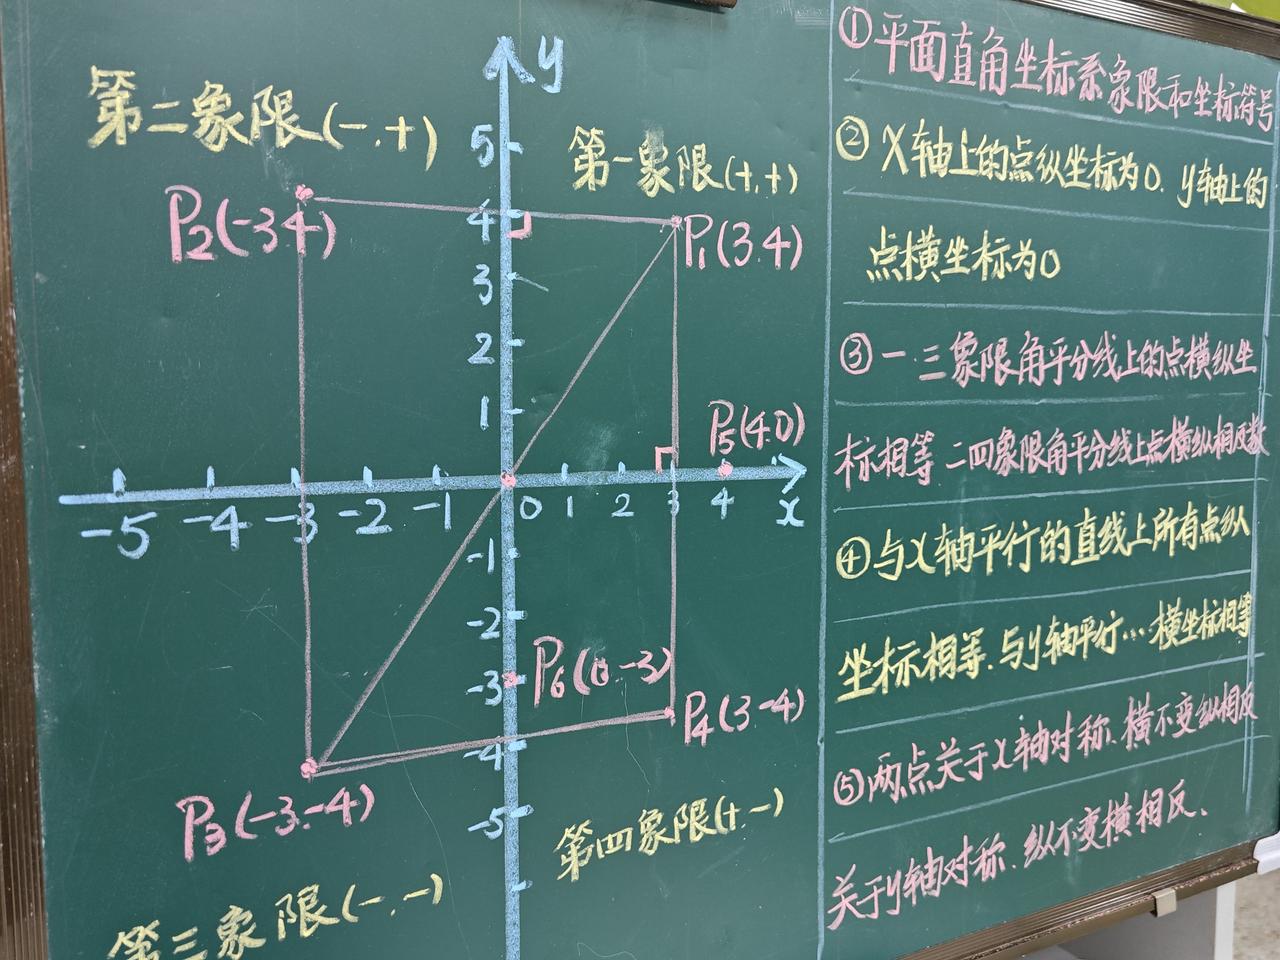 y
第二象限(-,+)
5
第一象限(+,+)
P2(-3 4)
4
P1(3.4)
3
2
1
P5(4.0)
-5 -4 -3 -2 -1 0 1 2 3 4 x
-1
-2
P6(0.-3)
-3
P4(3.-4)
-4
P3(-3.-4)
-5
第四象限(+,-)
第三象限(-,-)
①平面直角坐标系象限和坐标符号
②X轴上的点纵坐标为0. y轴上的
点横坐标为0
③一.三象限角平分线上的点横纵坐
标相等.二四象限角平分线上点横纵相反数
④与X轴平行的直线上所有点纵
坐标相等.与y轴平行…横坐标相等
⑤两点关于X轴对称.横不变纵相反
关于y轴对称.纵不变横相反、